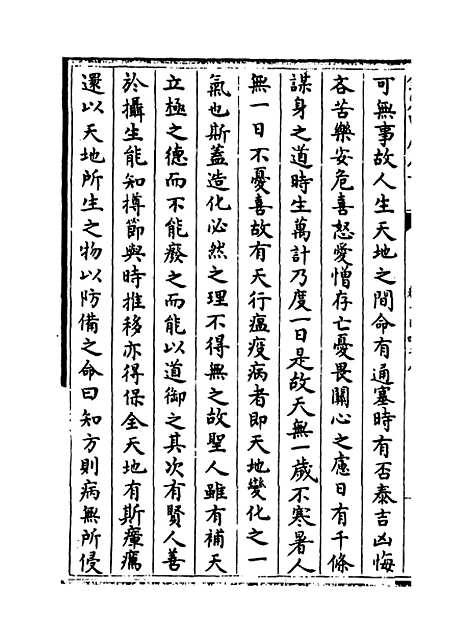 可無事故人生天地之間命有通塞時有否泰吉凶悔
吝苦樂安危喜怒愛憎存亡憂畏關心之慮日有千條
謀身之道時生萬計乃度一日是故天無一歲不寒暑人
無一日不憂喜故有天行瘟疫病者即天地變化之一
氣也斯蓋造化必然之理不得無之故聖人雖有補天
立極之德而不能廢之而能以道御之其次有賢人善
於攝生能知撙節與時推移亦得保全天地有斯瘴癘
還以天地所生之物以防備之命曰知方則病無所侵